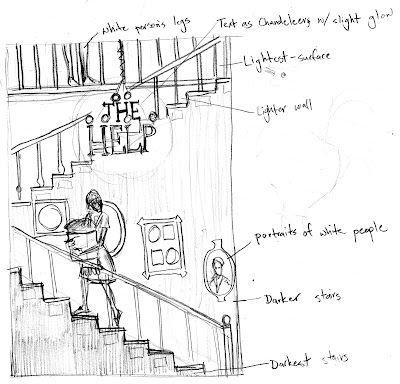 White person's legs
Text as Chandeleers w/ slight glow
Lightest-surface
Lighter wall
THE
HELP
portraits of white people
Darker stairs
Darkest stairs